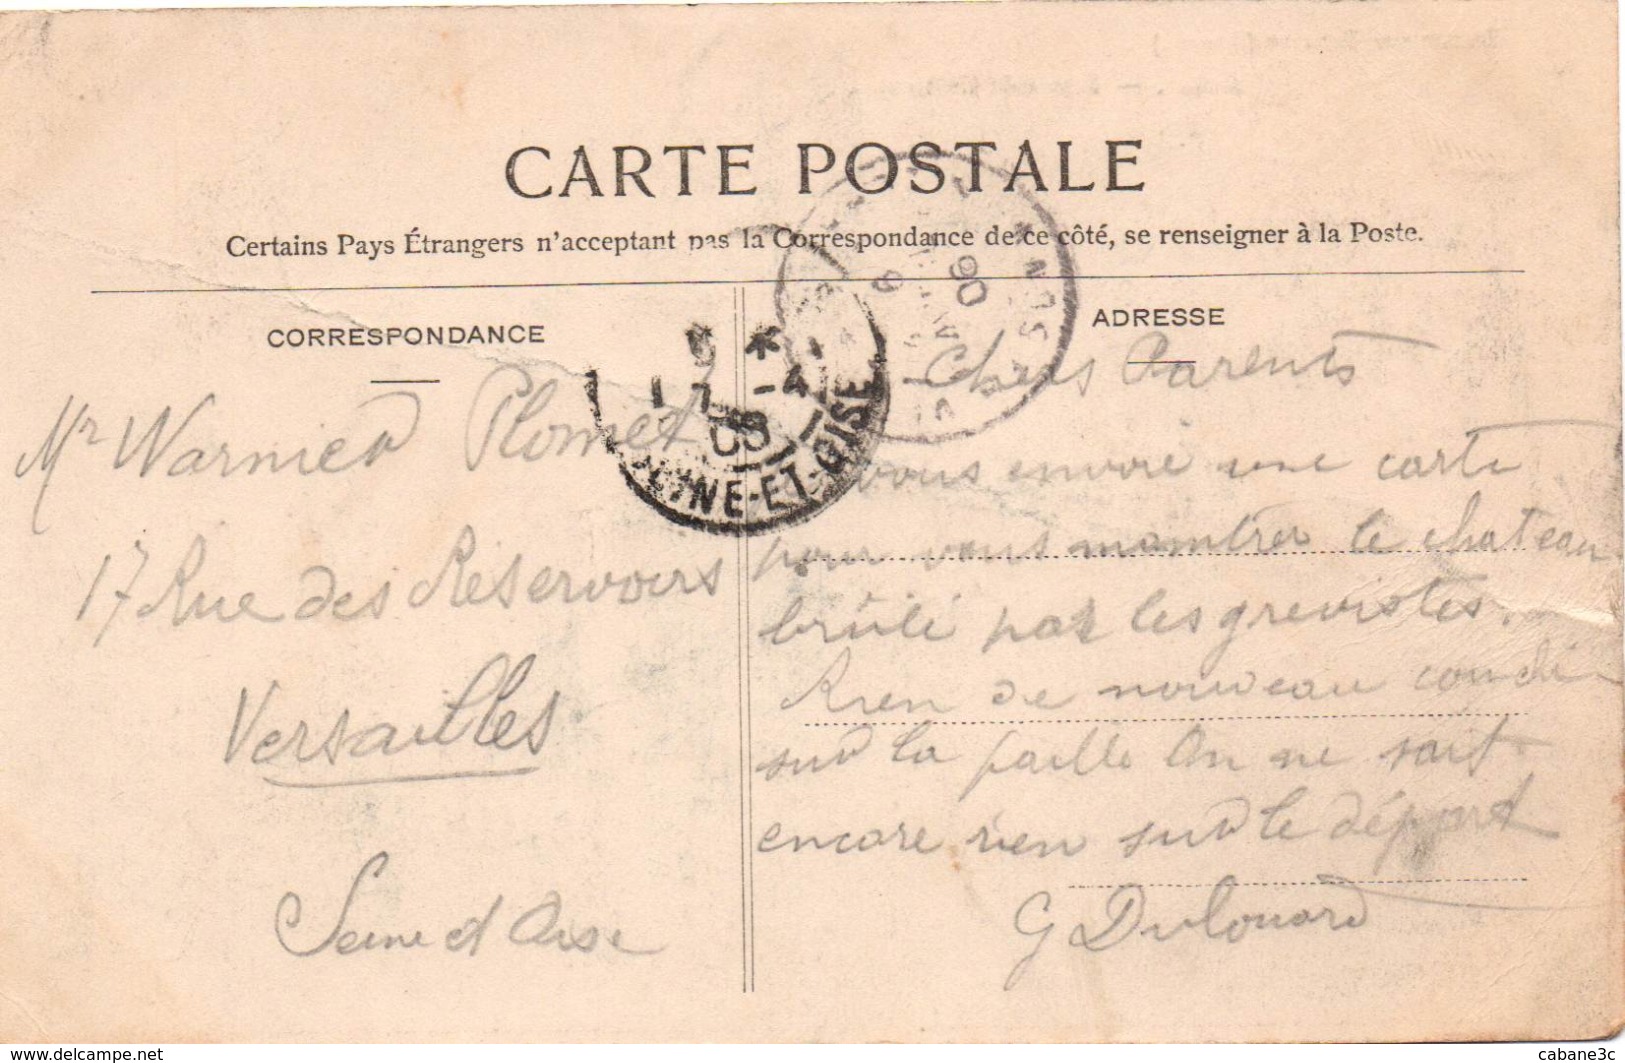 CARTE POSTALE
Certains Pays Étrangers n'acceptant pas la Correspondance de ce côté, se renseigner à la Poste.
CORRESPONDANCE
Mr Warnier Plomet
17 Rue des Reservoirs
Versailles
Seine et Oise
7 -4
SEINE-ET-OISE
ADRESSE
Chers Parents
vous envoie une carte
pour vous momtrer le chateau
brûlé par les grevistes.
Rien de nouveau couché
sur la paille On ne sait
encore rien sur le départ
G Dulouard
www.delcampe.net
cabane3c